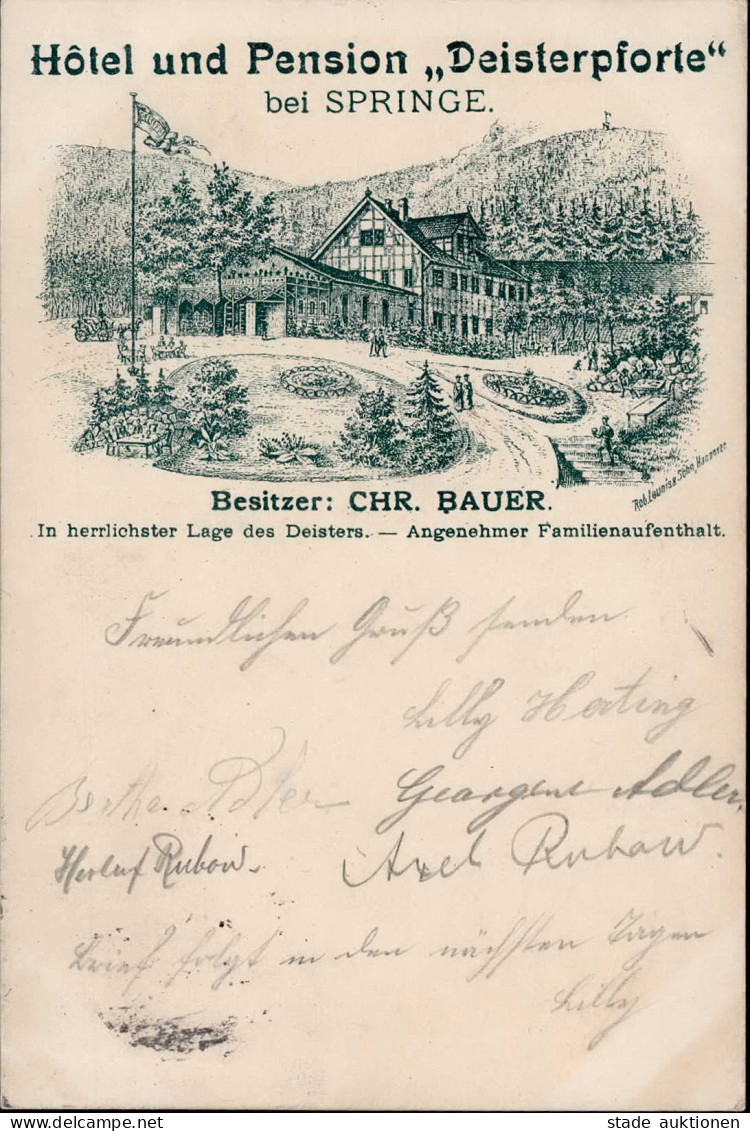 Hôtel und Pension „Deisterpforte“
bei SPRINGE.
Rob. Leunis & Sohn, Hannover
Besitzer: CHR. BAUER.
In herrlichster Lage des Deisters. — Angenehmer Familienaufenthalt.
Freundlichen Gruß senden
Lilly Herting
Bertha Adler Georgene Adler.
Herluf Rubow. Axel Rubow.
Brief folgt in den nächsten Tagen
Lilly
stade auktionen